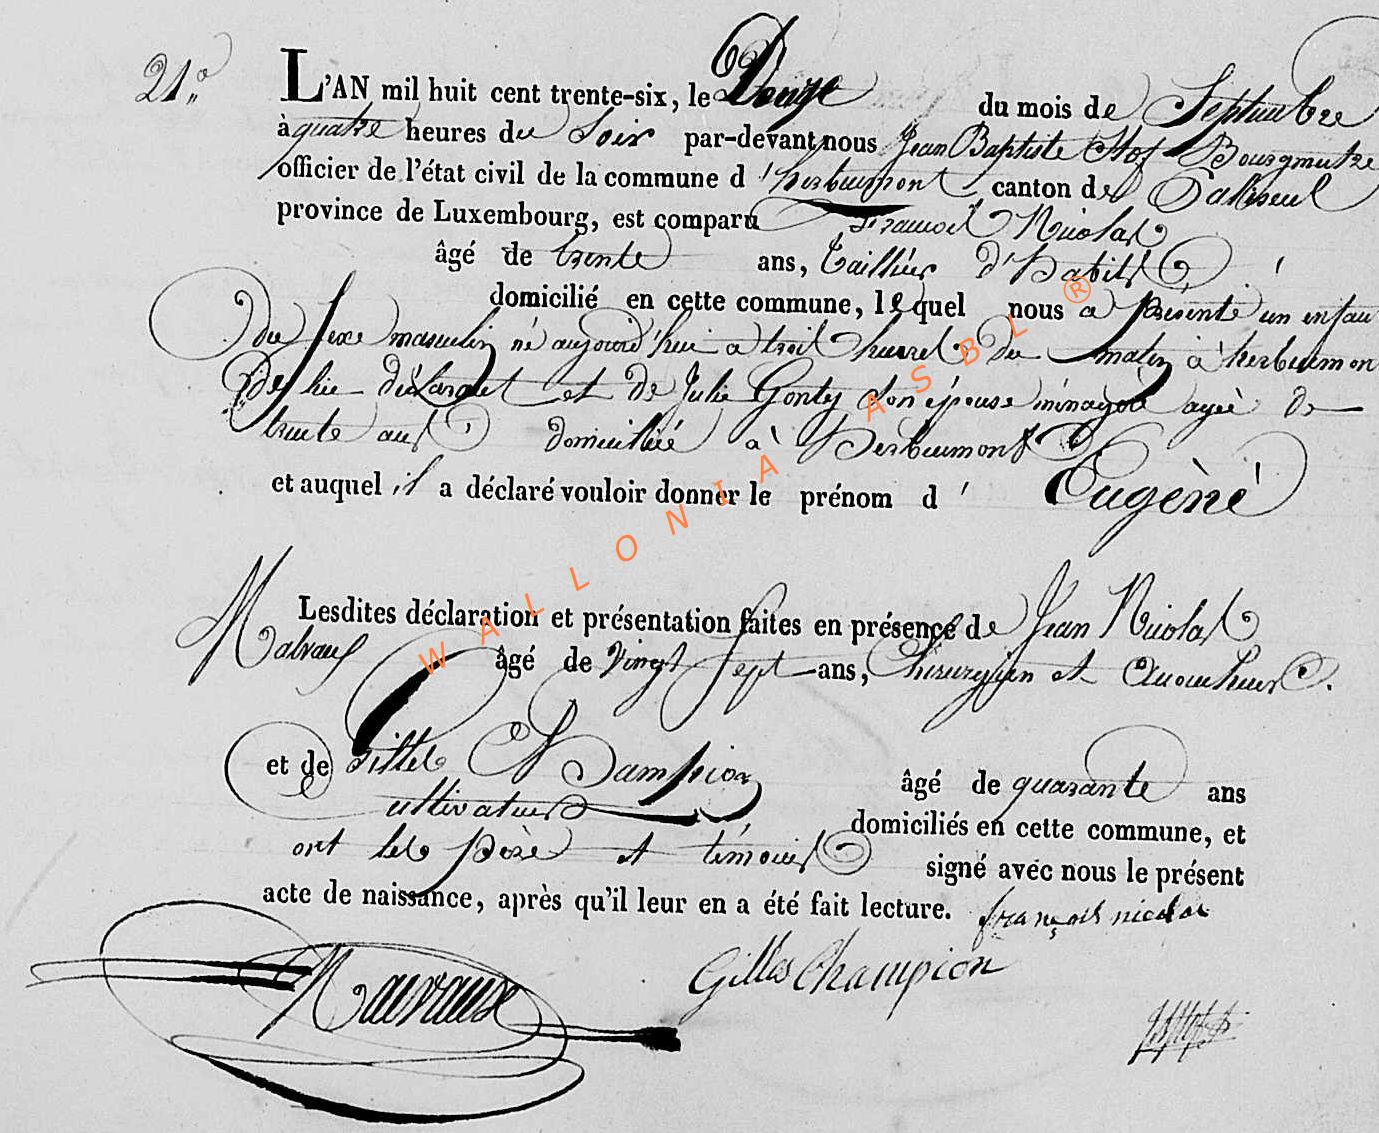 21°
L'AN mil huit cent trente-six, le Douze du mois de Septembre
à quatre heures du Soir par-devant nous Jean Baptiste Hof Bourgmetre
officier de l'état civil de la commune d'herbeumont canton de Paliseul
province de Luxembourg, est comparu François Nicolas
âgé de trente ans, Tailleur d'habits
domicilié en cette commune, lequel nous a présenté un enfan
du sexe masculin né aujourd'hui a trois heures du matin à herbeumon
de lui déclarant et de Julie Gonty son épouse ménagere agée de
trente ans domiciliée à herbeumont
et auquel il a déclaré vouloir donner le prénom d' Eugène
Lesdites déclaration et présentation faites en présence de Jean Nicolas
Malvaux âgé de vingt sept ans, Chirurgien et Accoucheur.
et de Gilles Champion âgé de quarante ans
cultivateur domiciliés en cette commune, et
ont les père et témoins signé avec nous le présent
acte de naissance, après qu'il leur en a été fait lecture. françois nicolas
Malvaux Gilles Champion
WALLONIA ASBL ®